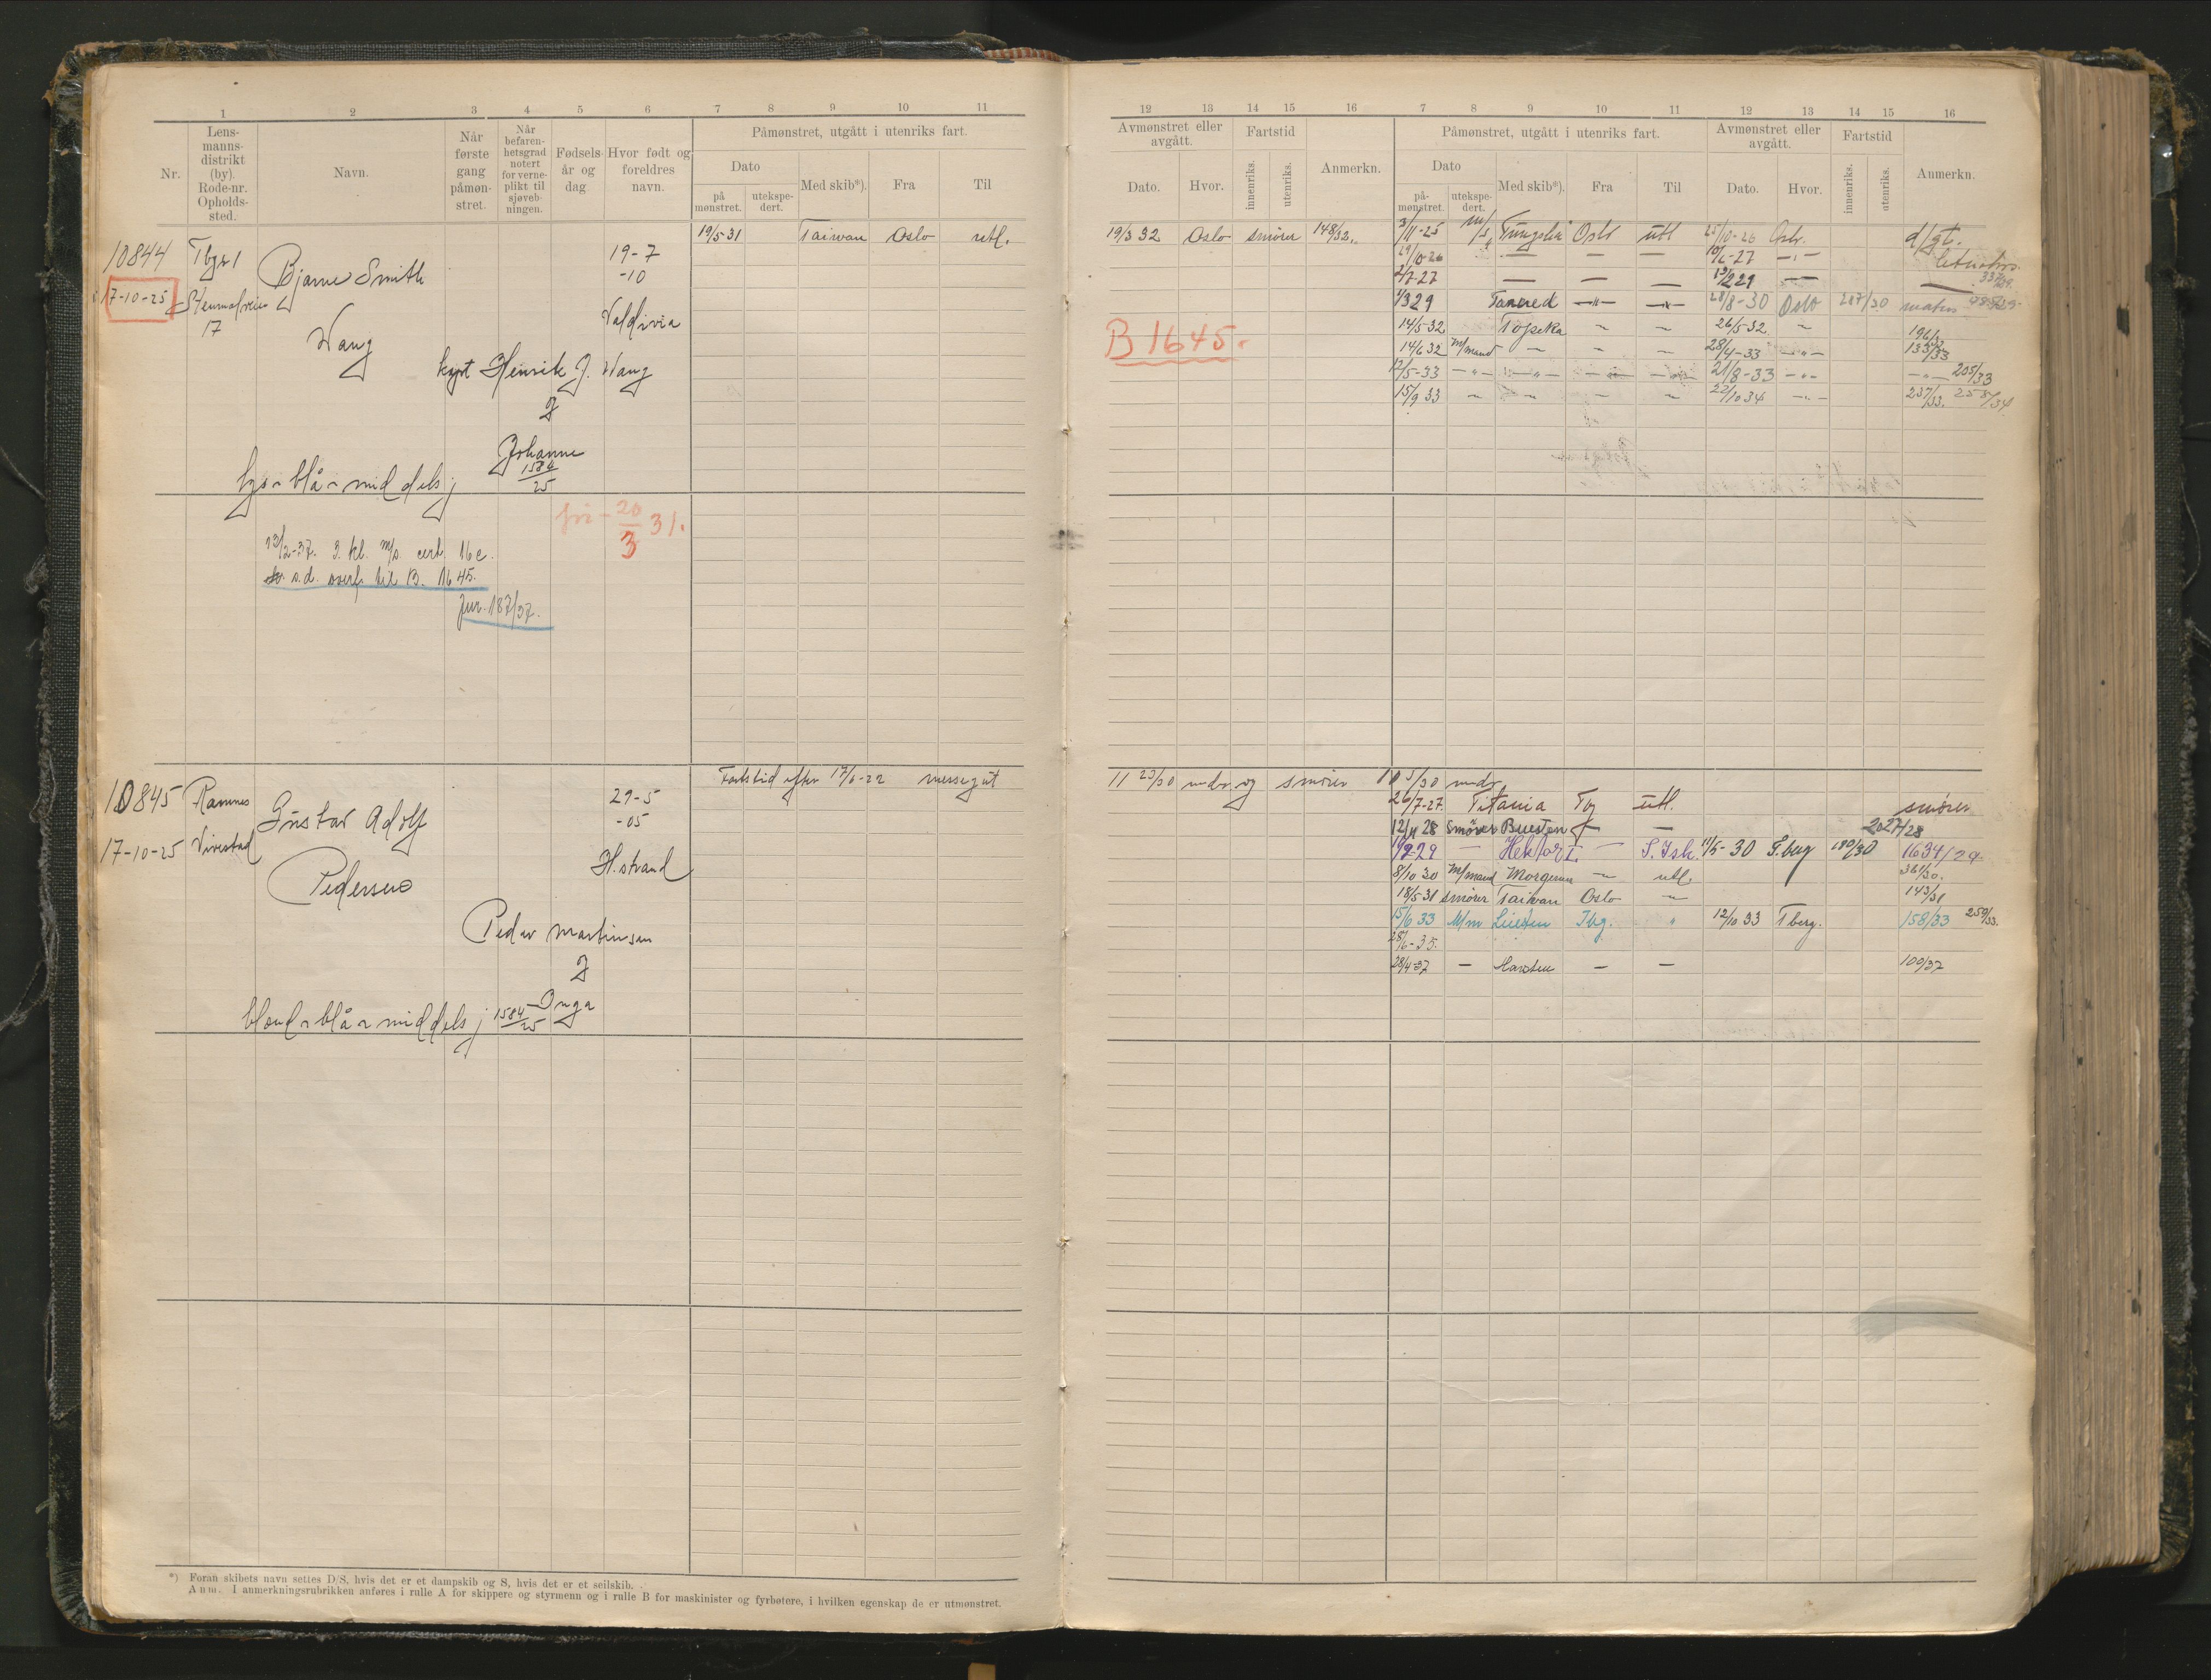 1 2 3 4 5 6 7 8 9 10 11
Nr.
Lens-
manns-
distrikt
(by).
Rode-nr.
Opholds-
sted.
Navn.
Når
første
gang
påmøn-
stret.
Når
befaren-
hetsgrad
notert
for verne-
plikt til
sjøveb-
ningen.
Fødsels-
år og
dag
Hvor født og
foreldres
navn.
Påmønstret, utgått i utenriks fart.
Dato
på
mønstret.
utekspe-
dert.
Med skib*).
Fra
Til
10844 Tbg 1 Bjarne Smith 19-7
-10
17-10-25
17
Wang Valdivia
kapt Henrik J. Wang
Johanne
1584
25
lys - blå - middels j
19/5-31 Taiwan Oslo utl.
fri - 20/3 31.
13/2-37. 3. kl. m/s. cert. 16 c.
s.d. overf. til B. 1645.
Jnr. 187/37.
10845 Ramnes Gustav Adolf 29-5
-05
17-10-25 Vivestad
Pedersen H.strand
Peder Martinsen
Inga
blond - blå - middels j 1584/25
Fartstid efter 17/6-22 messegut
*) Foran skibets navn settes D/S, hvis det er et dampskib og S, hvis det er et seilskib.
Anm. I anmerkningsrubrikken anføres i rulle A for skippere og styrmenn og i rulle B for maskinister og fyrbøtere, i hvilken egenskap de er utmønstret.
12 13 14 15 16 7 8 9 10 11 12 13 14 15 16
Avmønstret eller
avgått.
Dato.
Hvor.
Fartstid
innenriks.
utenriks.
Anmerkn.
Påmønstret, utgått i utenriks fart.
Dato
på-
mønstret.
utekspe-
dert.
Med skib*).
Fra
Til
Avmønstret eller
avgått.
Dato.
Hvor.
Fartstid
innenriks.
utenriks.
Anmerkn.
19/3 32 Oslo smører 148/32.
B 1645.
3/11-25 m/s Tungsha Oslo utl 25/10-26 Oslo. d/gt.
29/10-26 — — — 10/6-27 -"-
2/7-27 — — — 19/2 29 — 337/29.
1/3 29 Tancred -"- -"- 28/8-30 Oslo 287/30 matros
14/5-32 Topeka - 26/5-32 - 196/32
14/6 32 m/mand - - - 28/4-33 -"- 133/33
12/5-33 -"- -"- -"- -"- 21/8-33 -"- -"- 205/33
15/9 33 - - - - 22/10 34 -"- 237/33. 258/34
11 23/30 mndr. og smører 10 5/30 mndr
26/7-27. Titania Tbg utl. smører
12/11 28 smører Busten — 2027/28
19/2-29 — Hektor I. — S. Ish. 11/5-30 T.berg 180/30 1634/29
8/10 30 m/mand Morgenen - utl. 361/30.
18/5 31 smører Taiwan Oslo - 143/31
15/6 33 M/m Lüsten Tbg. " 12/10 33 Tberg. 158/33 250/33.
28/6-35.
28/4-37 — Havsten — — 100/37